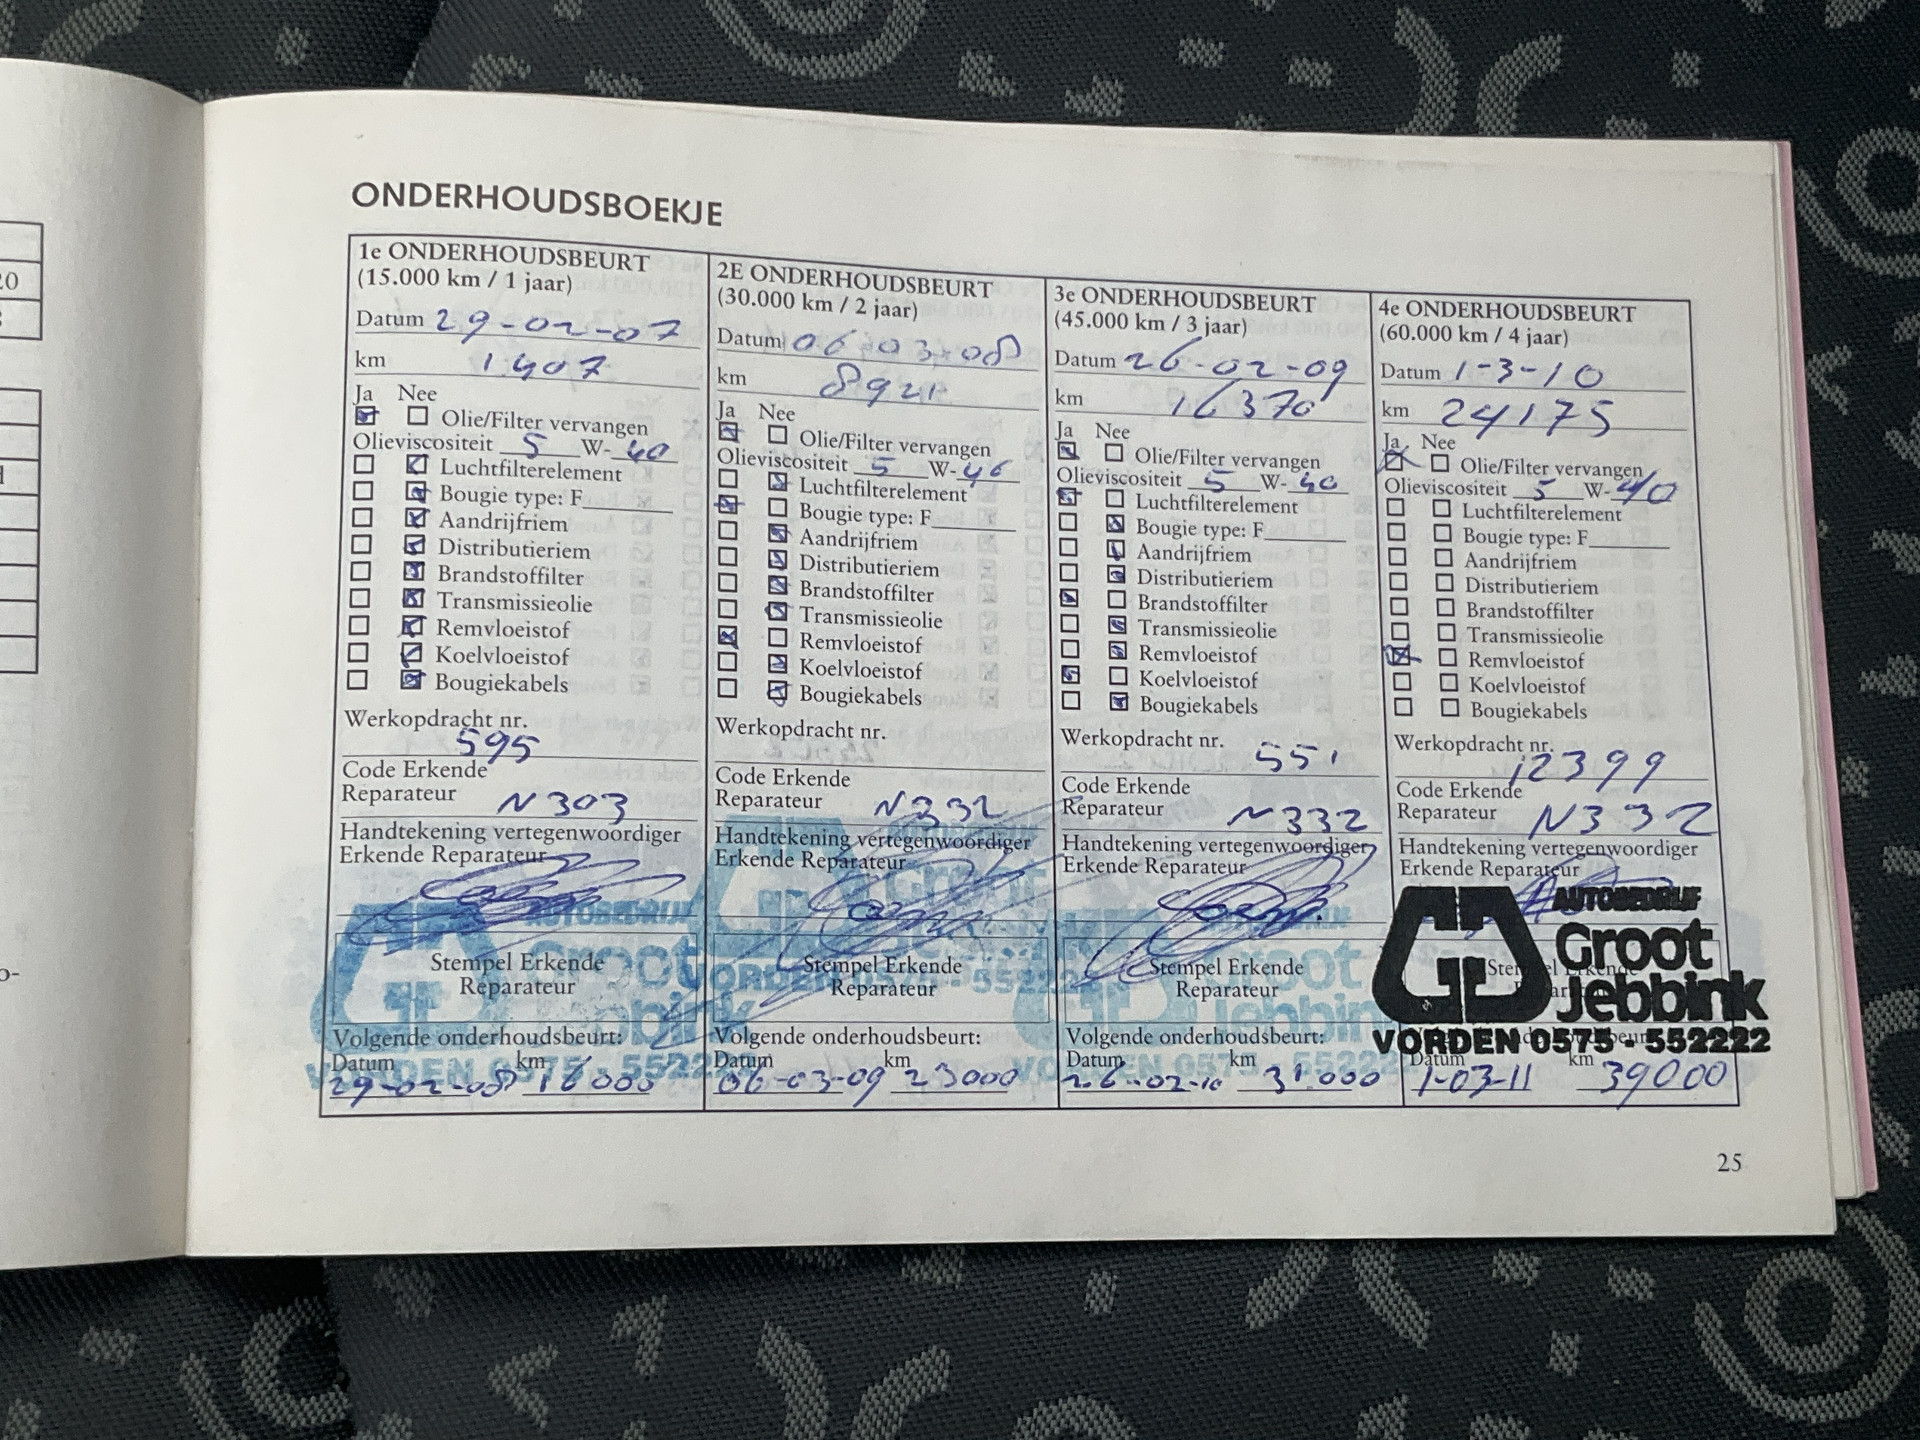 ONDERHOUDSBOEKJE
1e ONDERHOUDSBEURT
(15.000 km / 1 jaar)
Datum 29-02-07
km 1.407
Ja Nee
Olie/Filter vervangen
Olieviscositeit 5 W-40
Luchtfilterelement
Bougie type: F
Aandrijfriem
Distributieriem
Brandstoffilter
Transmissieolie
Remvloeistof
Koelvloeistof
Bougiekabels
Werkopdracht nr.
595
Code Erkende
Reparateur N303
Handtekening vertegenwoordiger
Erkende Reparateur
AUTOBEDRIJF
Groot
Jebbink
VORDEN 0575 - 552222
Stempel Erkende
Reparateur
Volgende onderhoudsbeurt:
Datum km
29-02-08 16000
2E ONDERHOUDSBEURT
(30.000 km / 2 jaar)
Datum 06-03-08
km 8921
Ja Nee
Olie/Filter vervangen
Olieviscositeit 5 W-40
Luchtfilterelement
Bougie type: F
Aandrijfriem
Distributieriem
Brandstoffilter
Transmissieolie
Remvloeistof
Koelvloeistof
Bougiekabels
Werkopdracht nr.
Code Erkende
Reparateur N332
Handtekening vertegenwoordiger
Erkende Reparateur
Groot
VORDEN 0575 - 552222
Stempel Erkende
Reparateur
Volgende onderhoudsbeurt:
Datum km
06-03-09 23000
3e ONDERHOUDSBEURT
(45.000 km / 3 jaar)
Datum 26-02-09
km 16370
Ja Nee
Olie/Filter vervangen
Olieviscositeit 5 W-40
Luchtfilterelement
Bougie type: F
Aandrijfriem
Distributieriem
Brandstoffilter
Transmissieolie
Remvloeistof
Koelvloeistof
Bougiekabels
Werkopdracht nr.
551
Code Erkende
Reparateur N332
Handtekening vertegenwoordiger
Erkende Reparateur
Groot
Jebbink
VORDEN 0575 - 552222
Stempel Erkende
Reparateur
Volgende onderhoudsbeurt:
Datum km
26-02-10 31.000
4e ONDERHOUDSBEURT
(60.000 km / 4 jaar)
Datum 1-3-10
km 24175
Ja Nee
Olie/Filter vervangen
Olieviscositeit 5 W-40
Luchtfilterelement
Bougie type: F
Aandrijfriem
Distributieriem
Brandstoffilter
Transmissieolie
Remvloeistof
Koelvloeistof
Bougiekabels
Werkopdracht nr.
12399
Code Erkende
Reparateur N332
Handtekening vertegenwoordiger
Erkende Reparateur
AUTOBEDRIJF
Groot
Jebbink
VORDEN 0575 - 552222
Datum km
1-03-11 39000
25